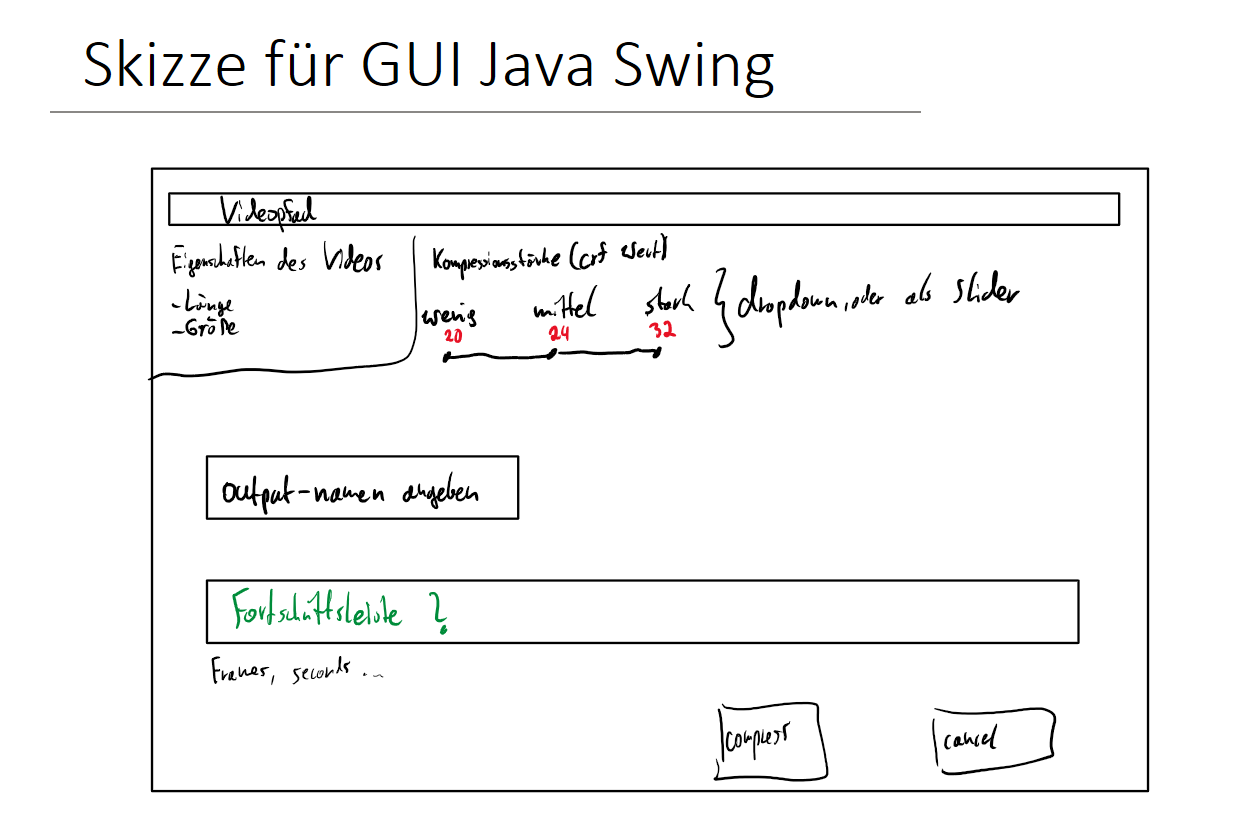 Skizze für GUI Java Swing
Videopfad
Eigenschaften des Videos
-Länge
-Größe
Kompressionsstärke (crf Wert)
wenig mittel stark
20 24 32
dropdown, oder als Slider
Output-namen angeben
Fortschrittsleiste ?
Frames, seconds ...
compress
cancel